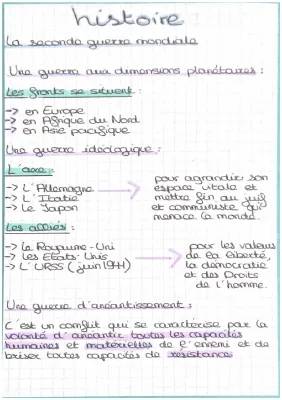 histoire
La seconde guerre mondiale
Une guerre aux dimensions planétaires :
Les fronts se situent :
→ en Europe
→ en Afrique du Nord
→ en Asie pacifique
Une guerre idéologique :
L'axe :
→ L'Allemagne
→ L'Italie
→ Le Japon
pour agrandir son
espace vitale et
mettre fin au juif
et communiste qui
menace le monde.
Les alliés :
→ Le Royaume-Uni
→ Les Etats-Unis
→ L'URSS (juin 1941)
pour les valeurs
de la liberté,
la démocratie
et des Droits
de l'homme.
Une guerre d'anéantissement :
C'est un conflit qui se caractérise par la
volonté d'anéantir toutes les capacités
humaines et matérielles de l'ennemi et de
briser toutes capacités de résistance